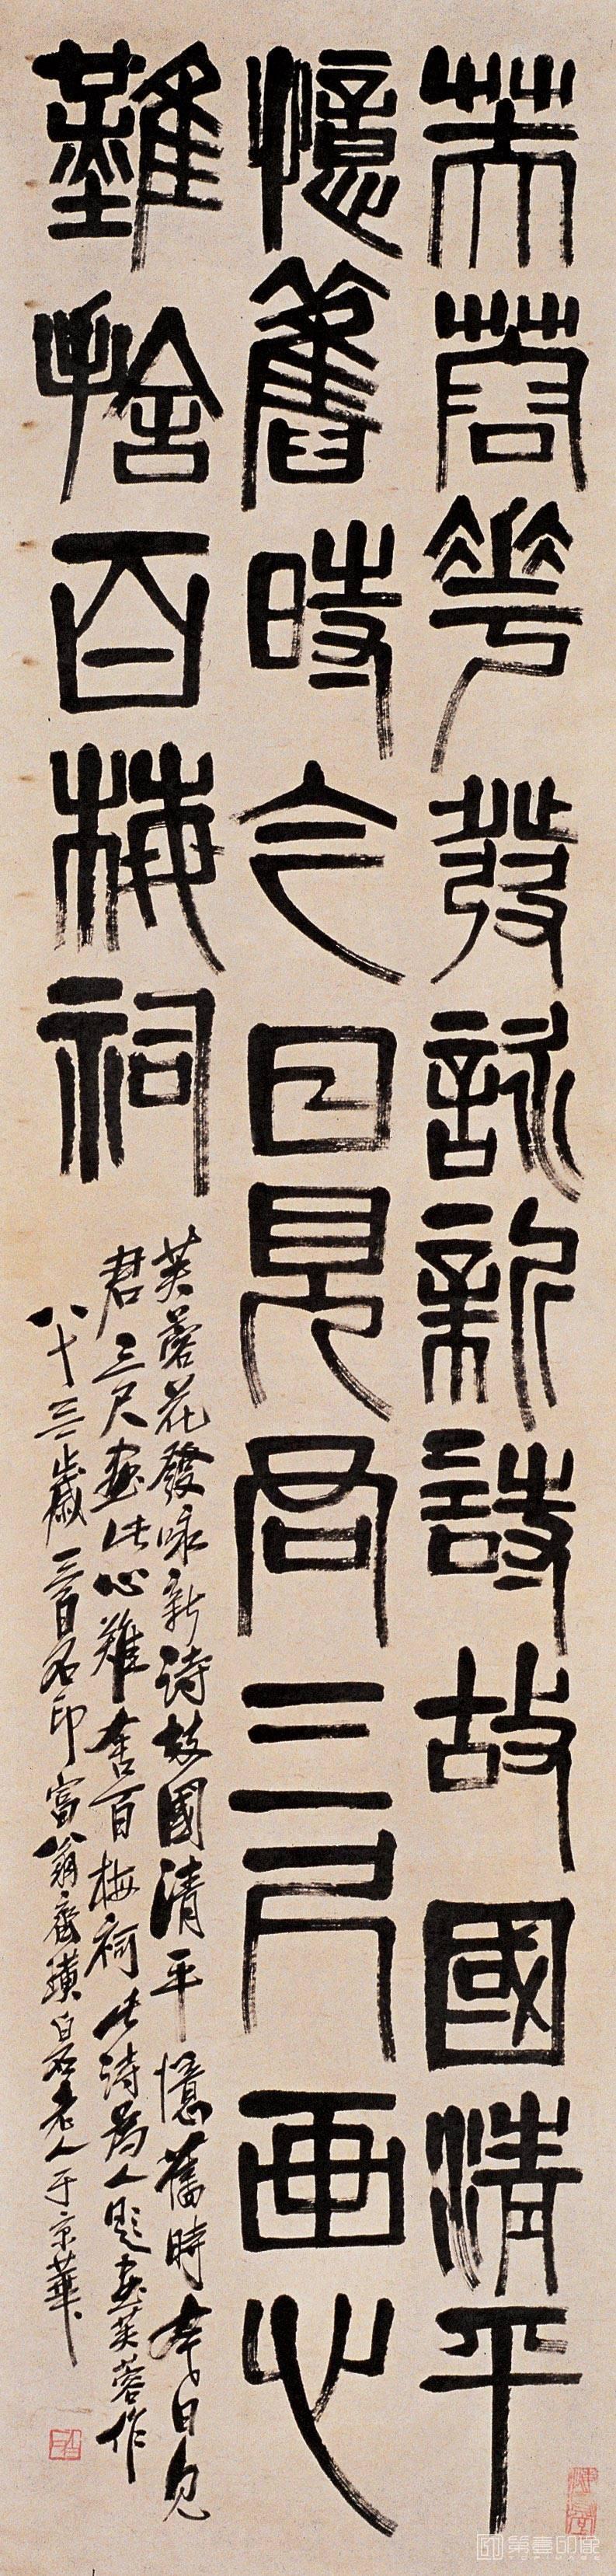 芙蓉花發詠新詩故國清平
憶舊時今日見君三尺画心
難捨百梅祠
芙蓉花發咏新詩故國清平憶舊時今日見
君三尺畫此心難舍百梅祠此詩為人題畫芙蓉作
八十三歲三百石印富翁齊璜白石老人于京華
第壹印象